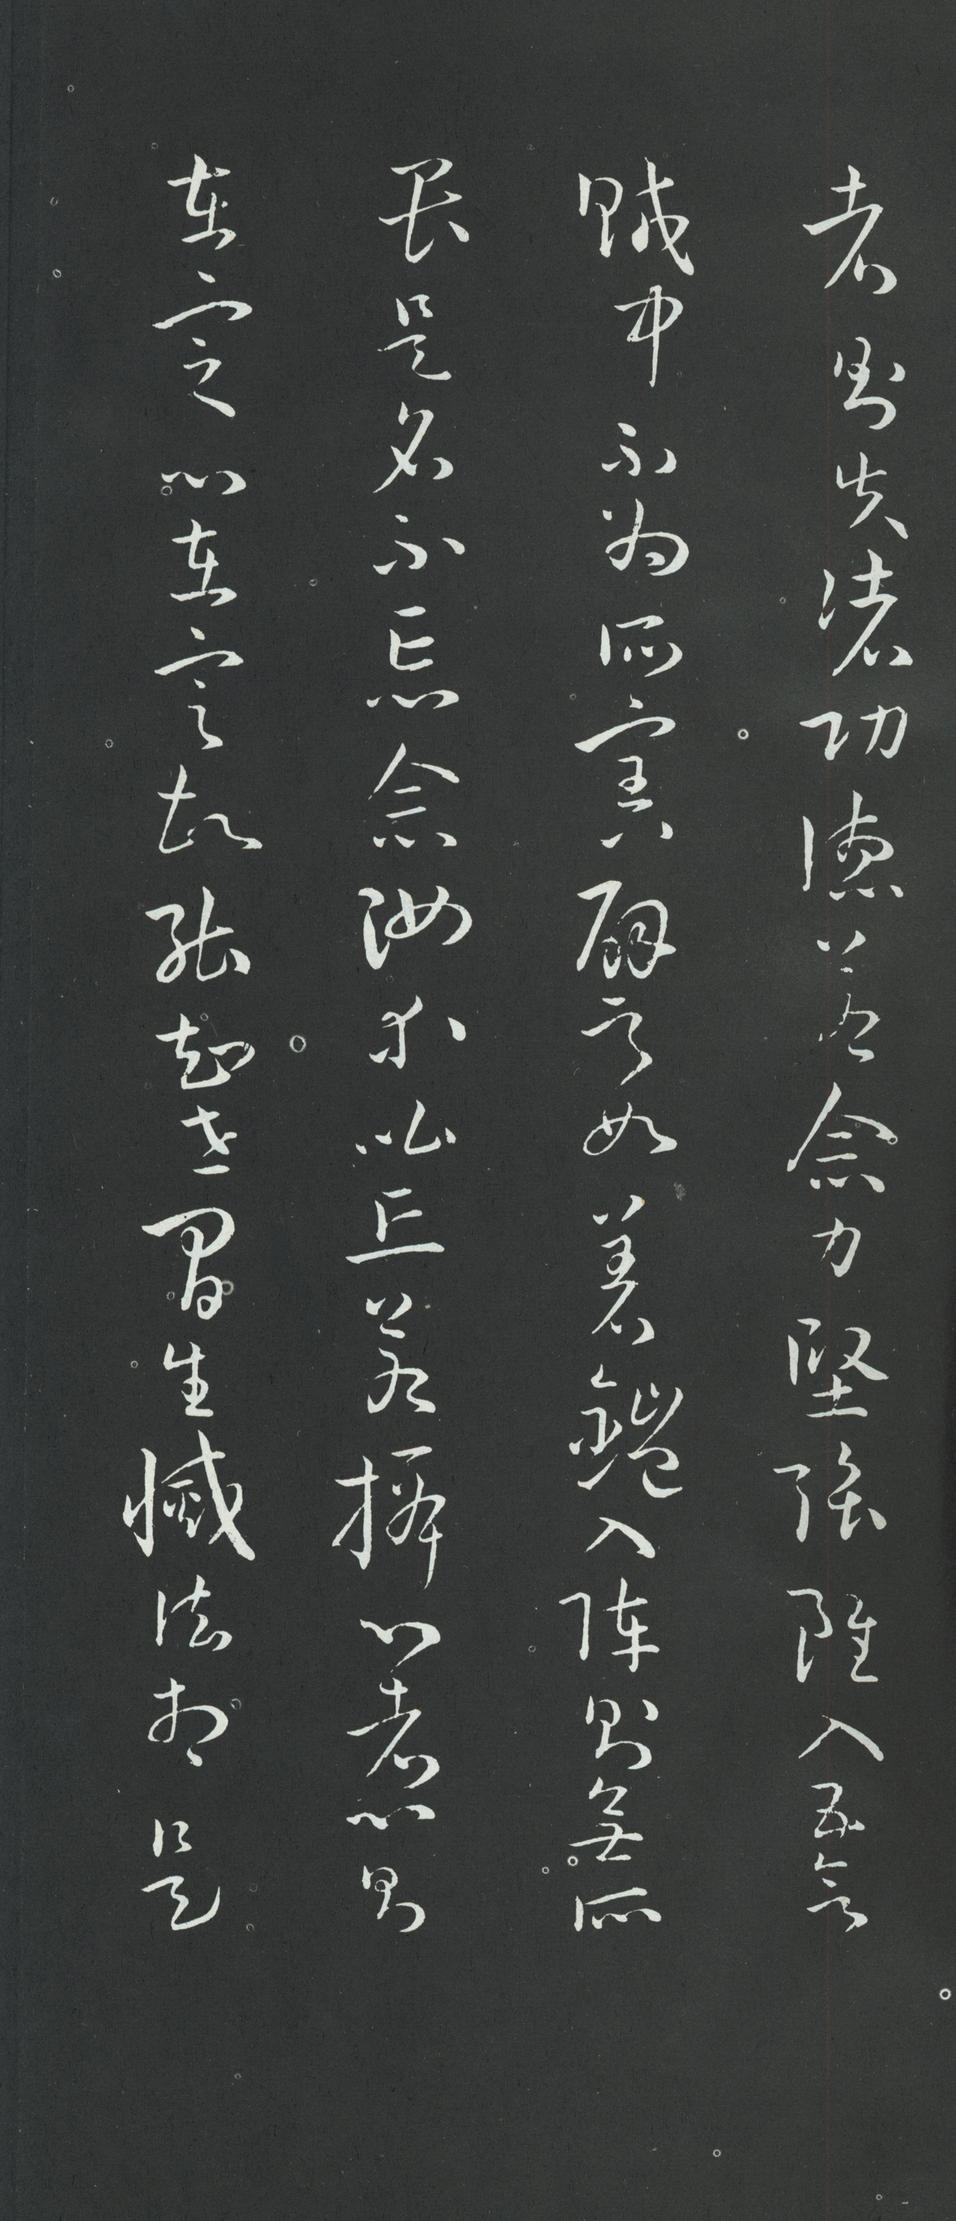 者則失諸功德若念力堅強雖入五欲
賊中不為所害譬如著鎧入陣則無所
畏是名不忘念汝等比丘若攝心者心則
在定心在定故能知世間生滅法相是